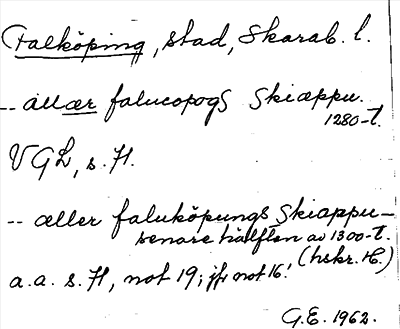 Falköping, stad, Skarab. l.
-- allær falucopogs skiæppu.
1280-t.
VGL, s. 71.
-- æller faluköpungs skiæppu-
senare hälften av 1300-t.
(hskr. H.)
a.a. s. 71, not 19; jfr not 16.
G.E. 1962.